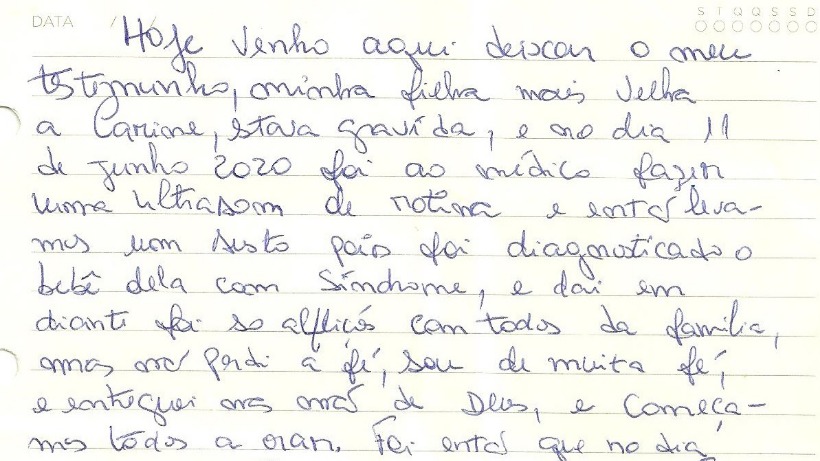 DATA / /
S T Q Q S S D
Hoje venho aqui deixar o meu
testemunho, minha filha mais velha
a Carine, stava gravída, e no dia 11
de junho 2020 foi ao médico fazer
uma ultrasom de rotina e entõ leva-
mos um susto pois foi diagnoticado o
bebê dela com Síndrome, e daí em
diante foi so aflição com todos da família,
mas nõ perdi a fé, sou de muita fé,
e entreguei nas mõs de Deus, e começa-
mos todos a orar. Foi entõ que no dia